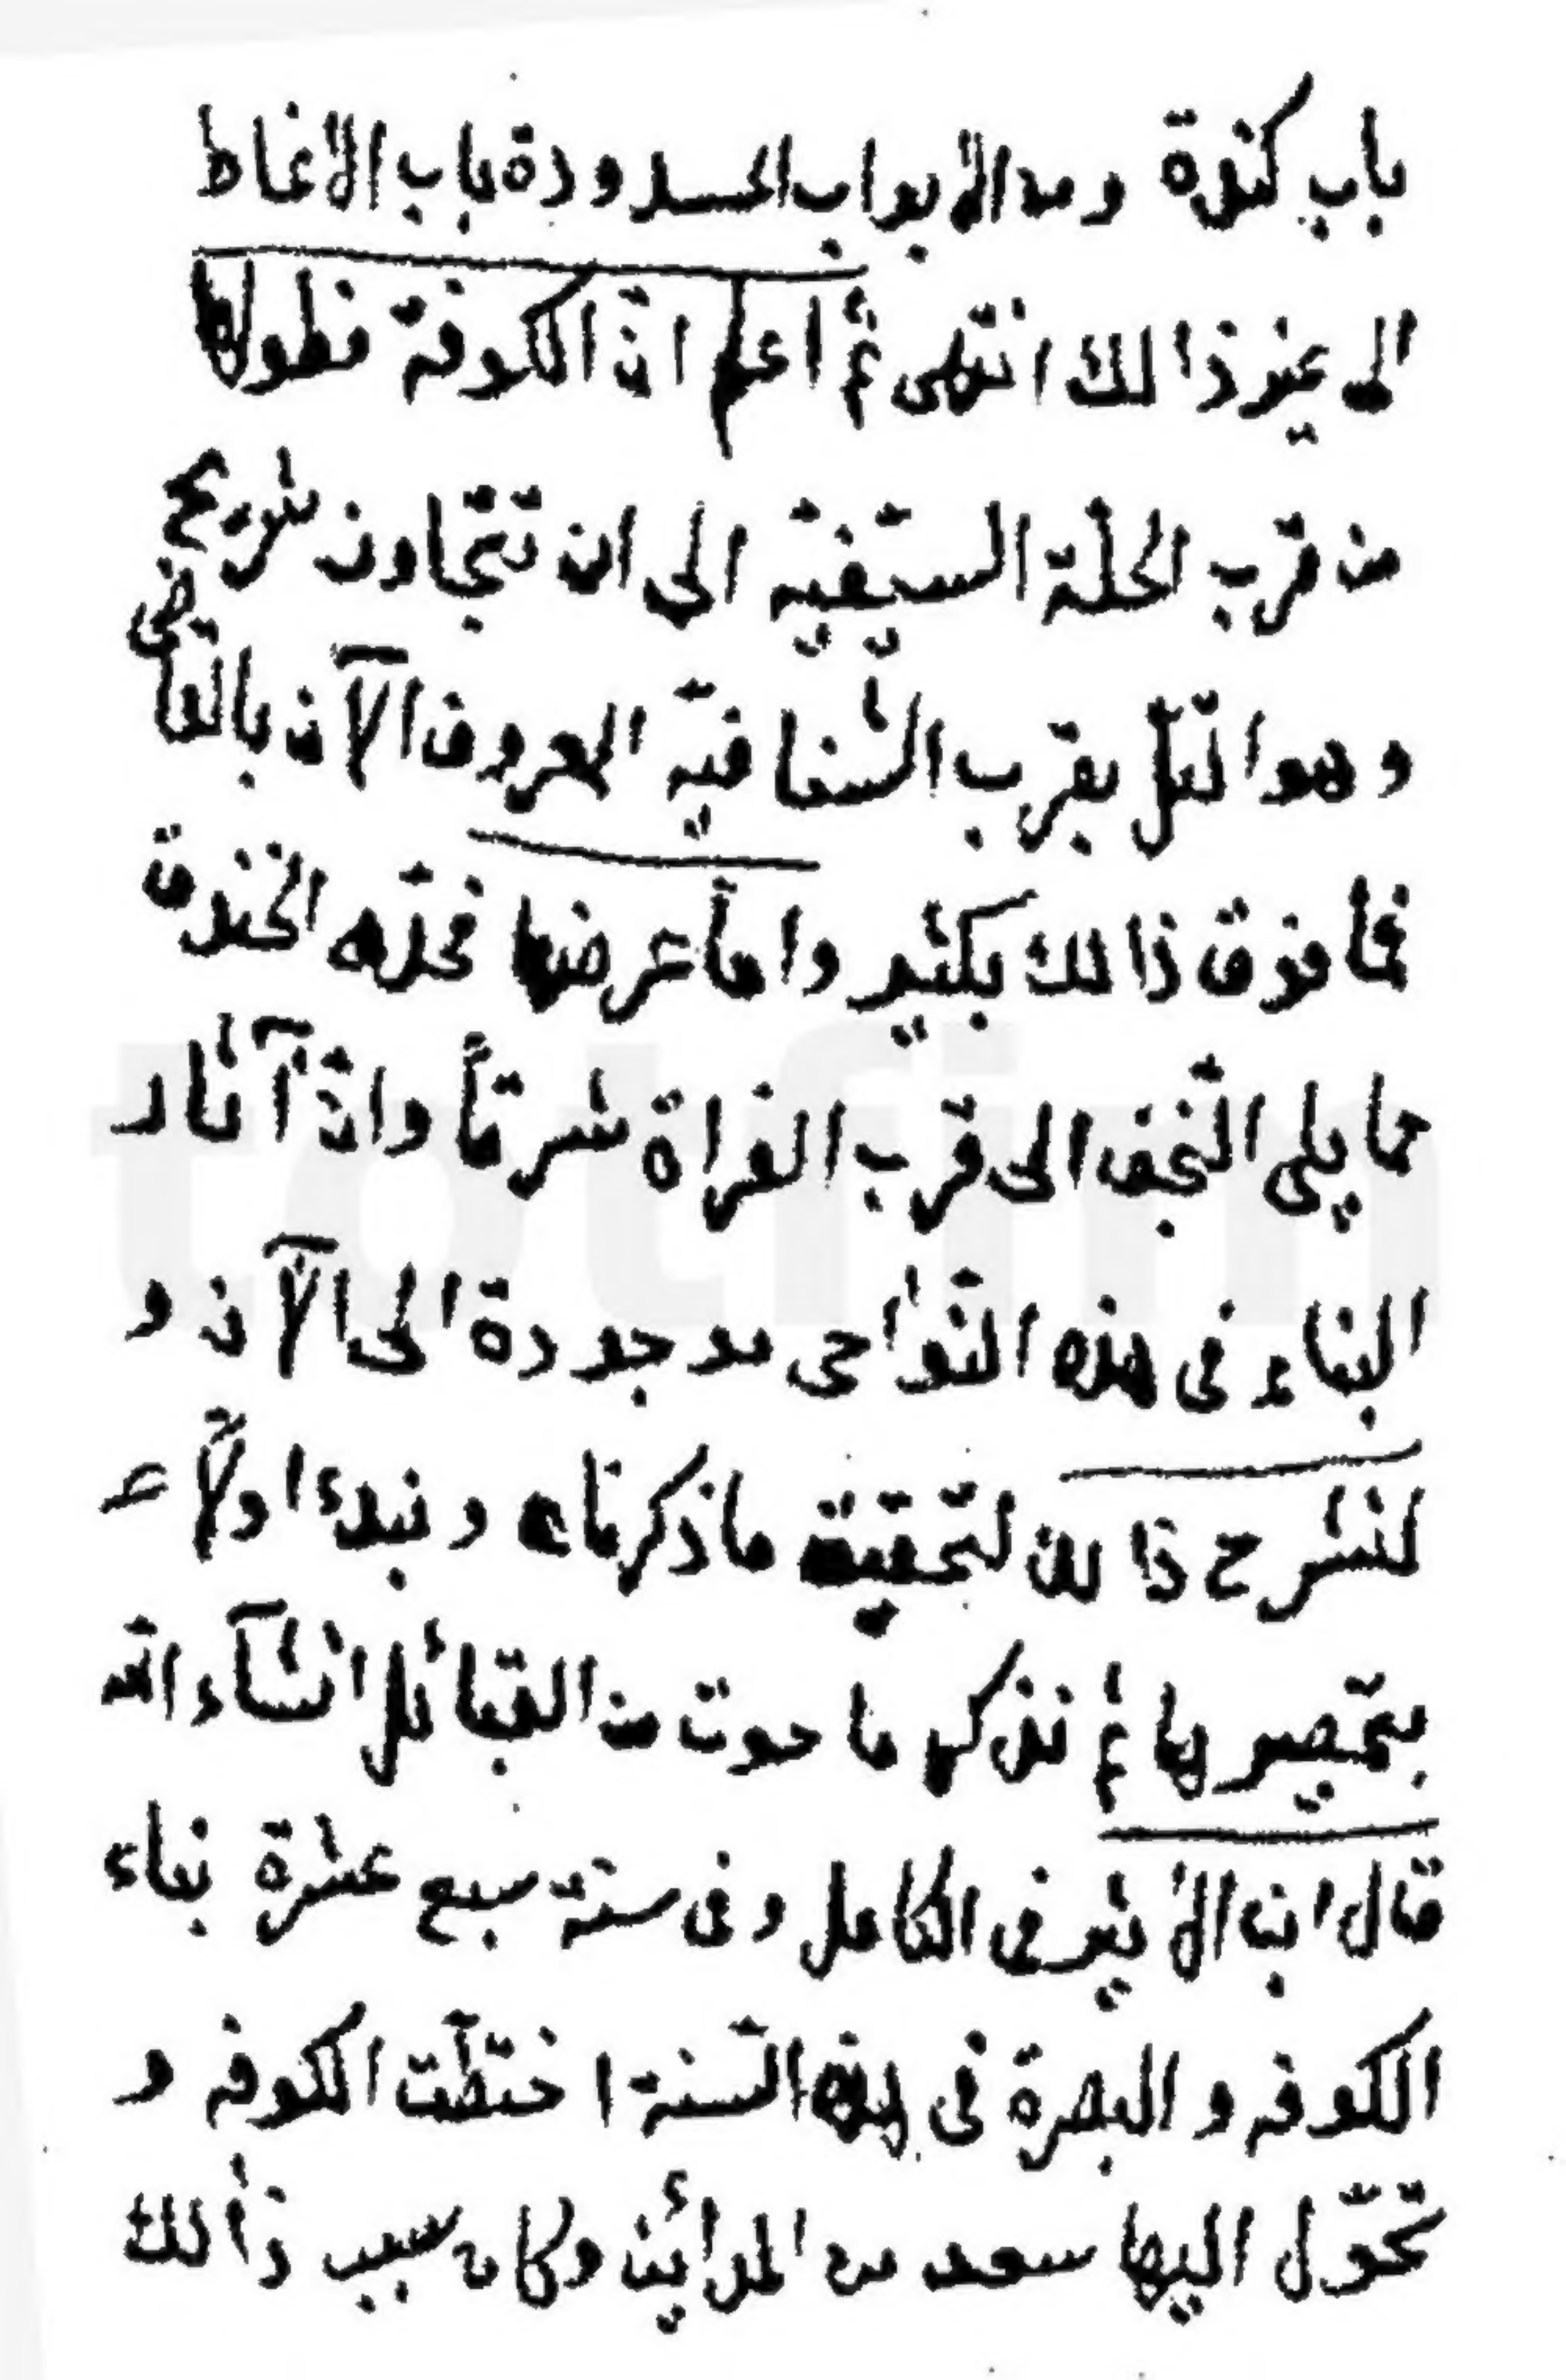 باب كندة ومن الأبواب المسدودة باب الانماط
الى غير ذالك انتهى ثم اعلم انّ الكوفة فطولها
من قرب الحلّة السيّفيّه الى ان تتجاوز شريح
وهو التلّ بقرب الشّنافيّه المعروف الآن بالقاضى
فما فوق ذالك بكثير واما عرضها فحدّه الخندق
مما يلى النّجف الى قرب الفراة شرقاً وانّ آثار
البناء فى هذه النّواحى موجودة الى الآن و
لنشرح ذالك لتحقيق ما ذكرناه ونبدء اولاً
بتمصيرها ثم نذكر ما حوت من القبائل انشآء الله
قال ابن الأثير فى الكامل وفى سنة سبع عشرة بناء
الكوفه والبصرة فى هذه السّنة اختطّت الكوفه و
تحوّل اليها سعد من المدائين وكان سبب ذالك
totfim